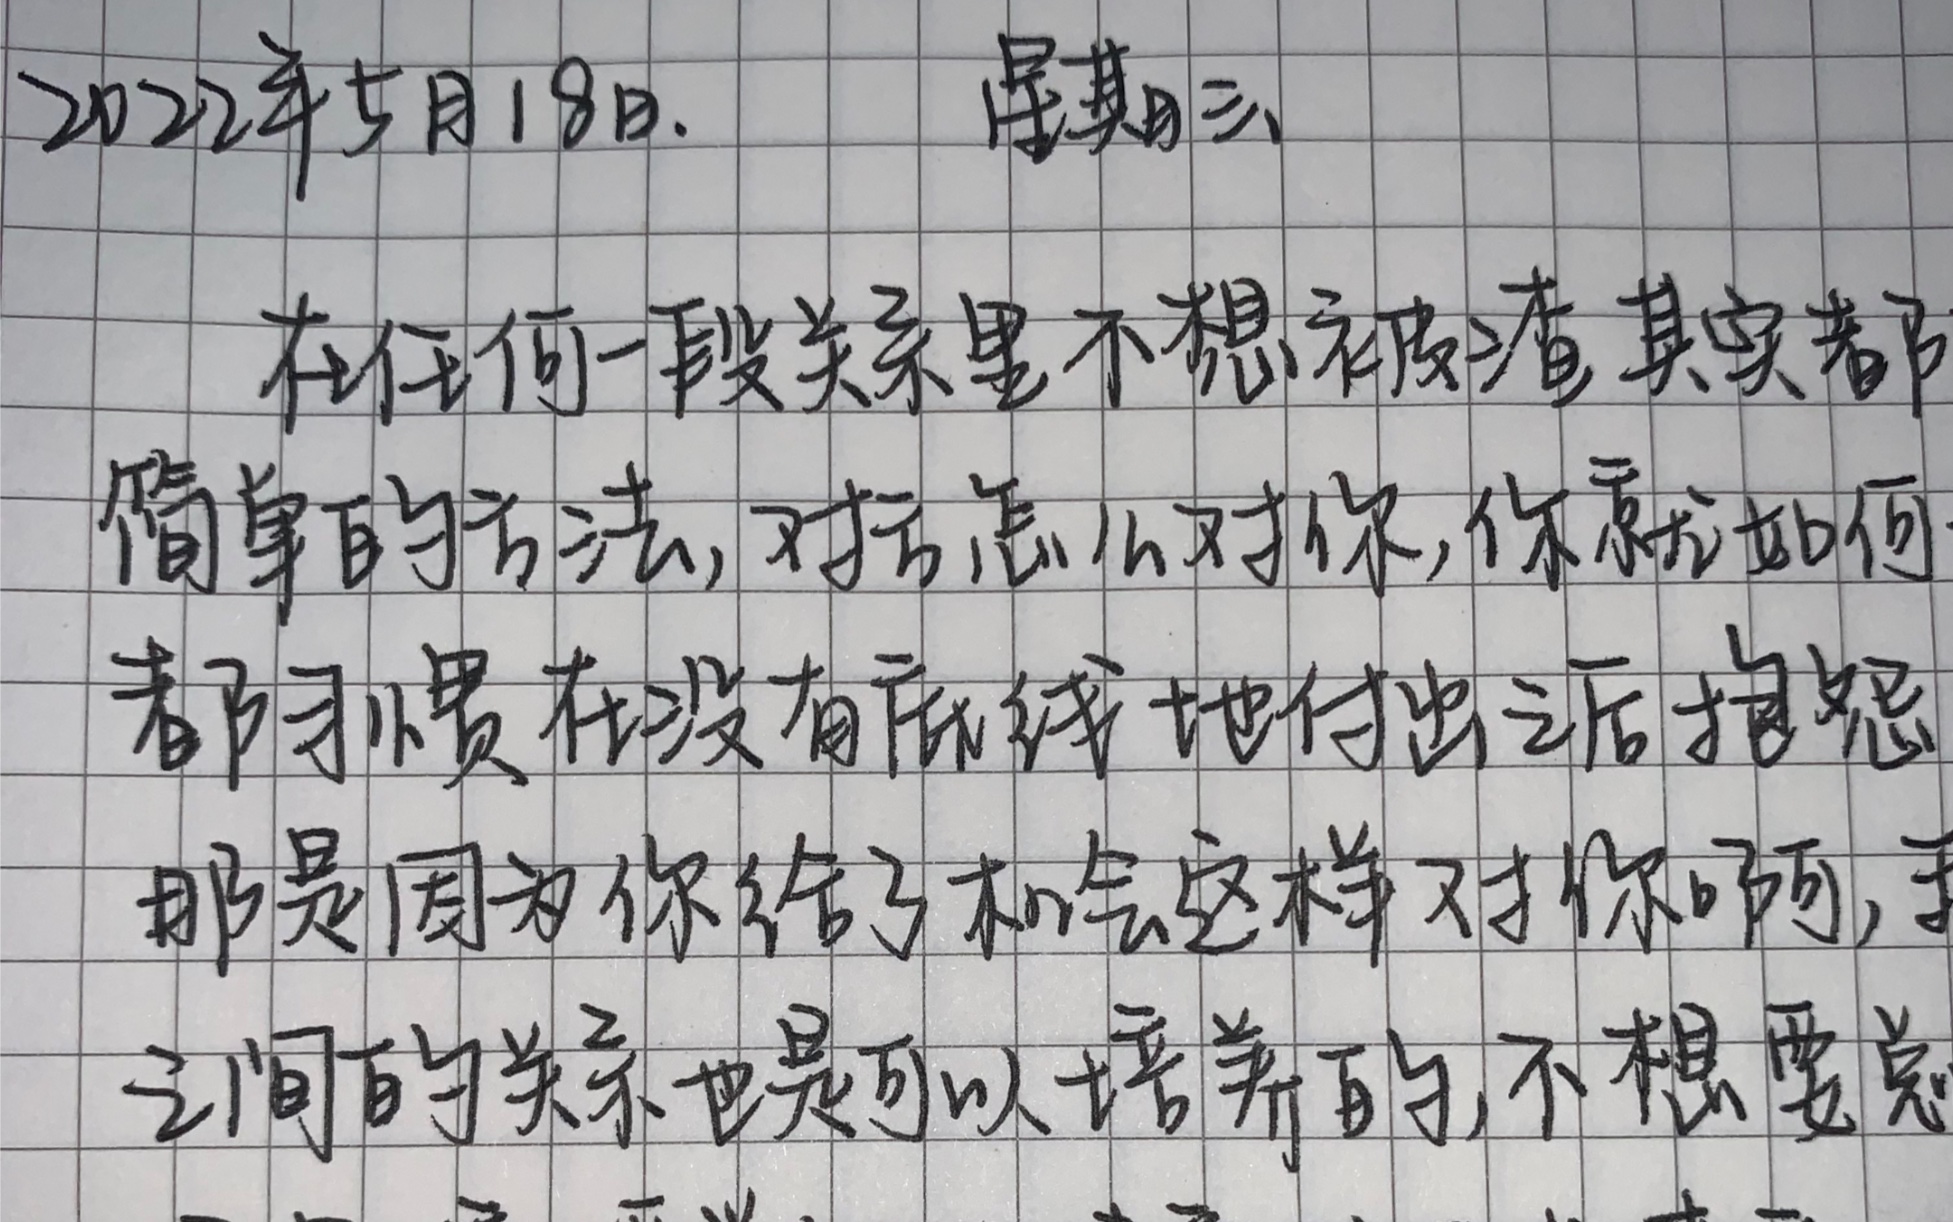 2022年5月18日. 星期三
在任何一段关系里不想被渣其实都
简单的方法,对方怎么对你,你就如何
都习惯在没有底线地付出之后抱怨
那是因为你给了机会这样对你啊,
之间的关系也是可以培养的,不想要总